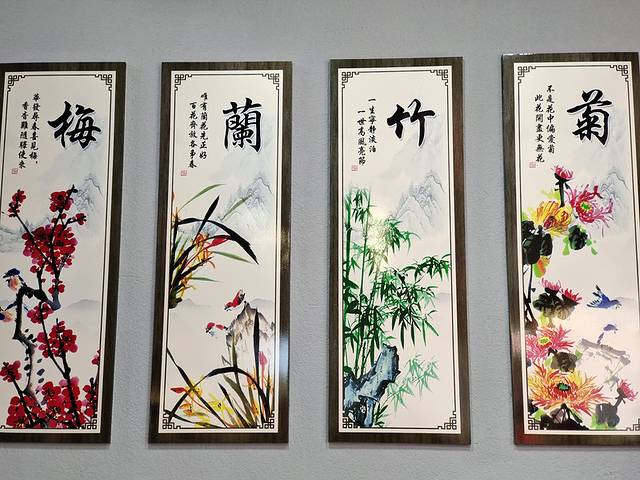 梅
華發尋春喜見梅，
香杳難隨驛使來
蘭
唯有蘭花香正好
百花齊放各爭春
竹
一生寧靜淡泊
一世高風亮節
菊
不是花中偏愛菊
此花開盡更無花